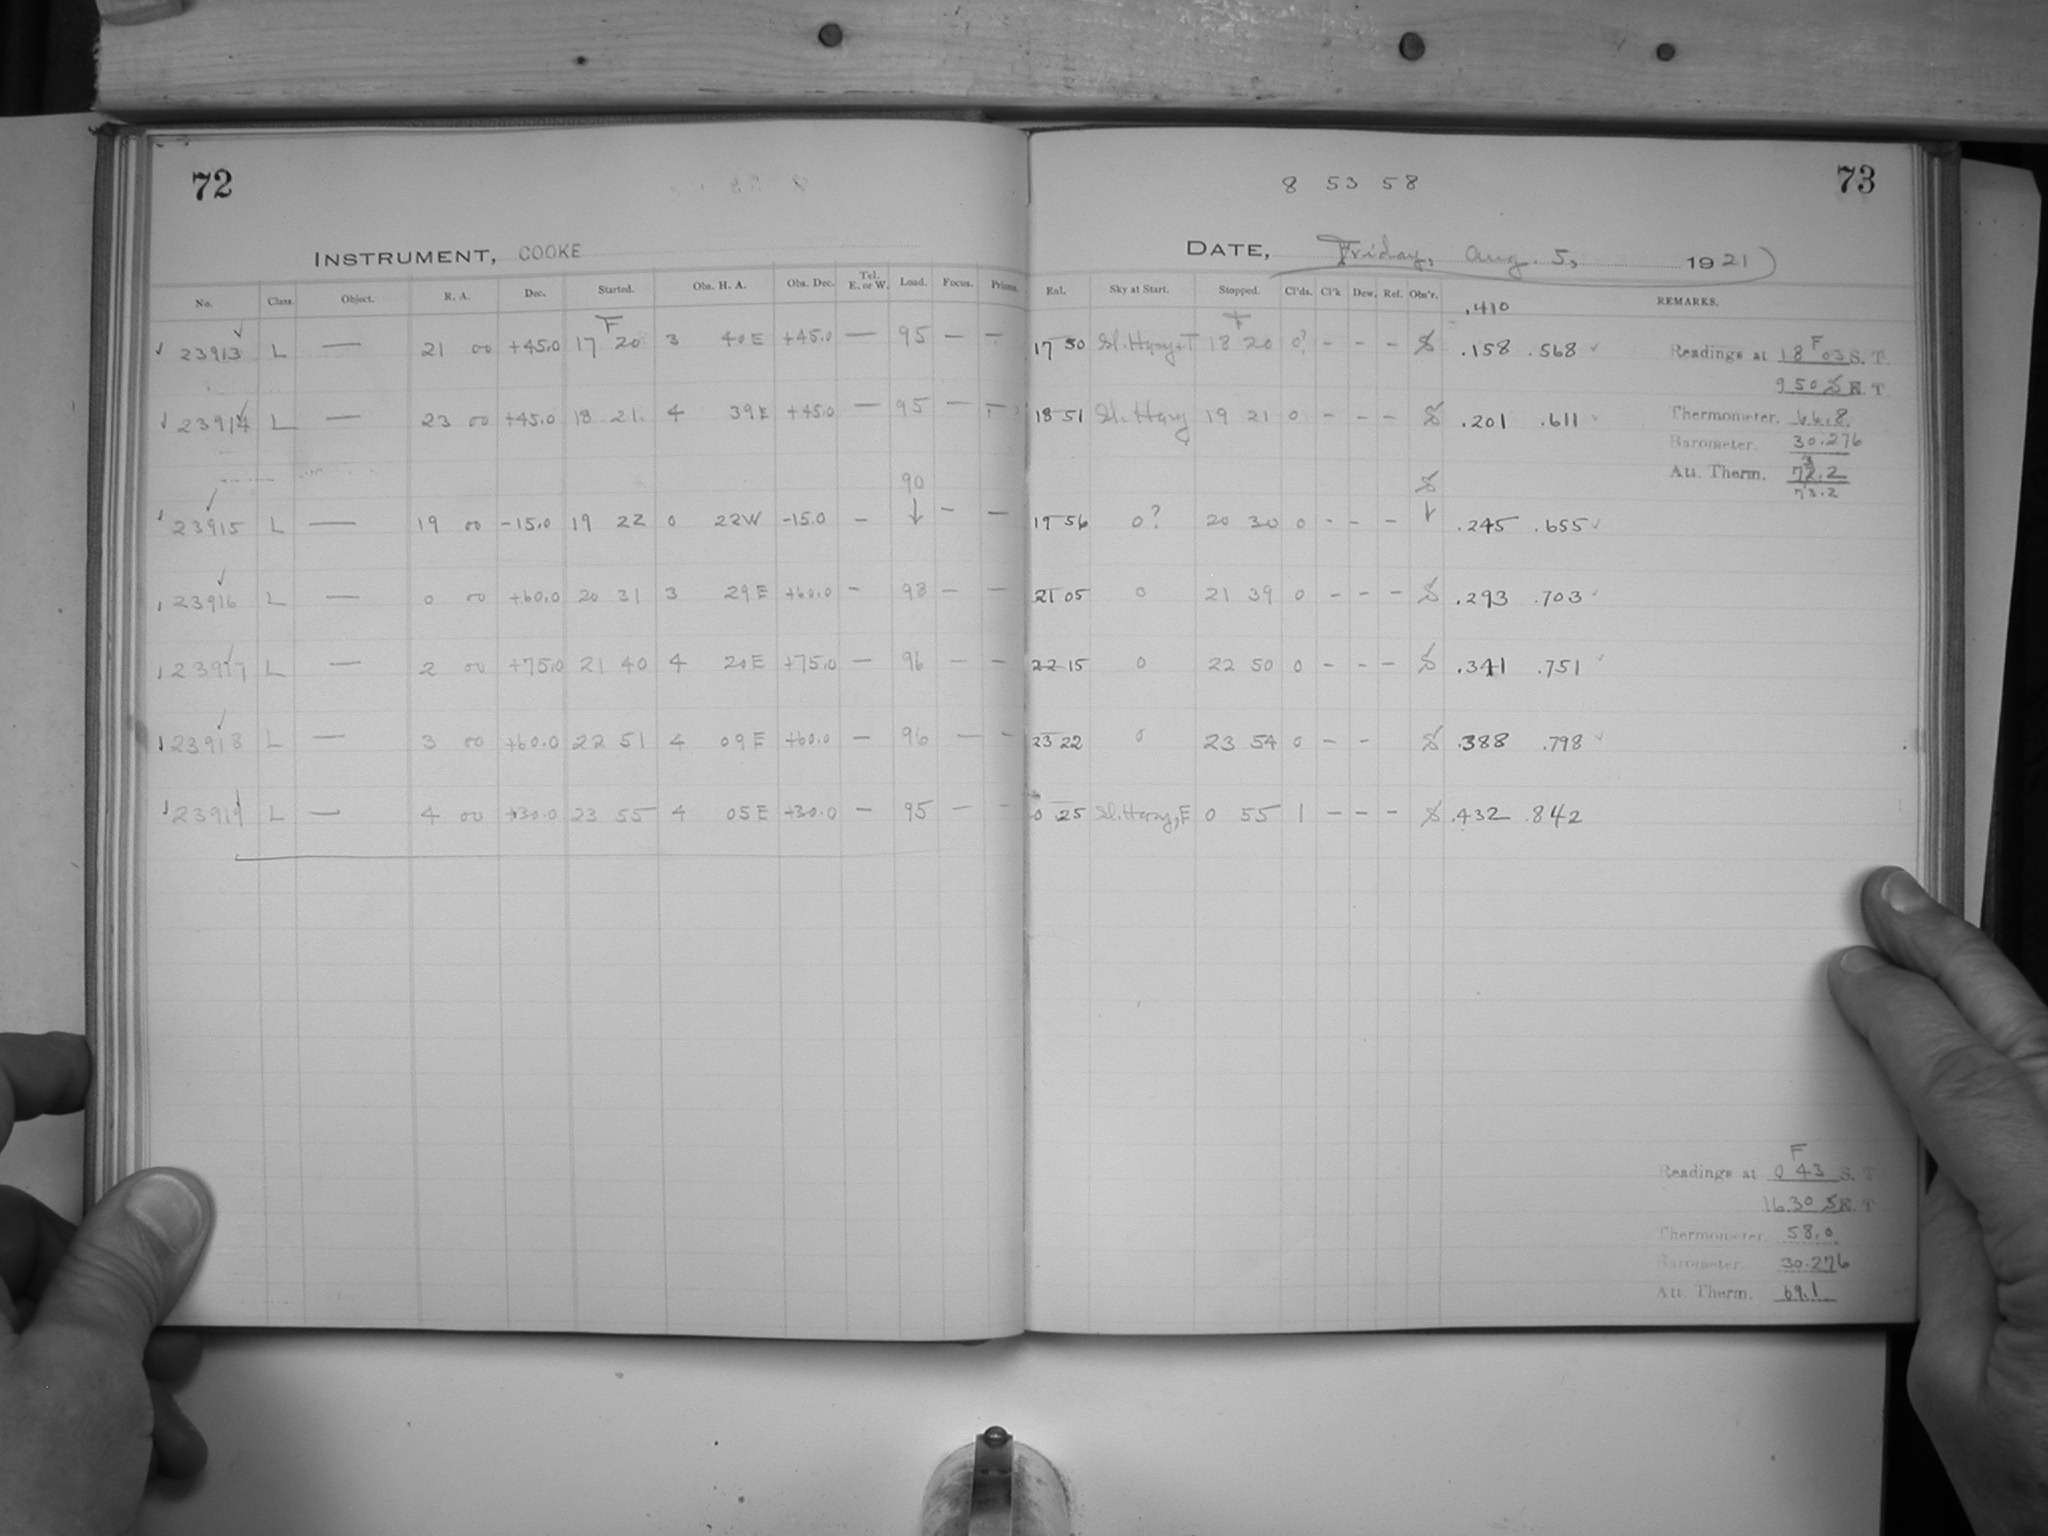 72
INSTRUMENT, COOKE
No. Class. Object. R. A. Dec. Started. Obs. H. A. Obs. Dec. Tel. E. or W. Load. Focus. Prisms.
F
23913 L — 21 00 +45.0 17 20 3 40 E +45.0 — 95 — —
23914 L — 23 00 +45.0 18 21. 4 39 E +45.0 — 95 — —
90
23915 L — 19 00 -15.0 19 22 0 22 W -15.0 — ↓ — —
23916 L — 0 00 +60.0 20 31 3 29 E +60.0 — 98 — —
23917 L — 2 00 +75.0 21 40 4 20 E +75.0 — 96 — —
23918 L — 3 00 +60.0 22 51 4 09 E +60.0 — 96 — —
23919 L — 4 00 +30.0 23 55 4 05 E +30.0 — 95 — —
8 53 58
73
DATE, Friday, Aug. 5, 1921
Ent. Sky at Start. Stopped. Cl'ds. Cl'k Dew. Ref. Obs'r. REMARKS.
.410
F
17 50 Sl. Hazy+T 18 20 0? - - - S .158 .568
18 51 Sl. Hazy 19 21 0 - - - S .201 .611
S
19 56 0? 20 30 0 - - - ↓ .245 .655
21 05 0 21 39 0 - - - S .293 .703
22 15 0 22 50 0 - - - S .341 .751
23 22 0 23 54 0 - - S .388 .798
0 25 Sl. Hazy, F 0 55 1 - - - S .432 .842
F
Readings at 18 03 S. T.
9 50 S E. T
Thermometer. 66.8
Barometer. 30.276
Att. Therm. 72.2
73.2
F
Readings at 0 43 S. T
16 30 S E. T
Thermometer. 58.0
Barometer. 30.276
Att. Therm. 69.1